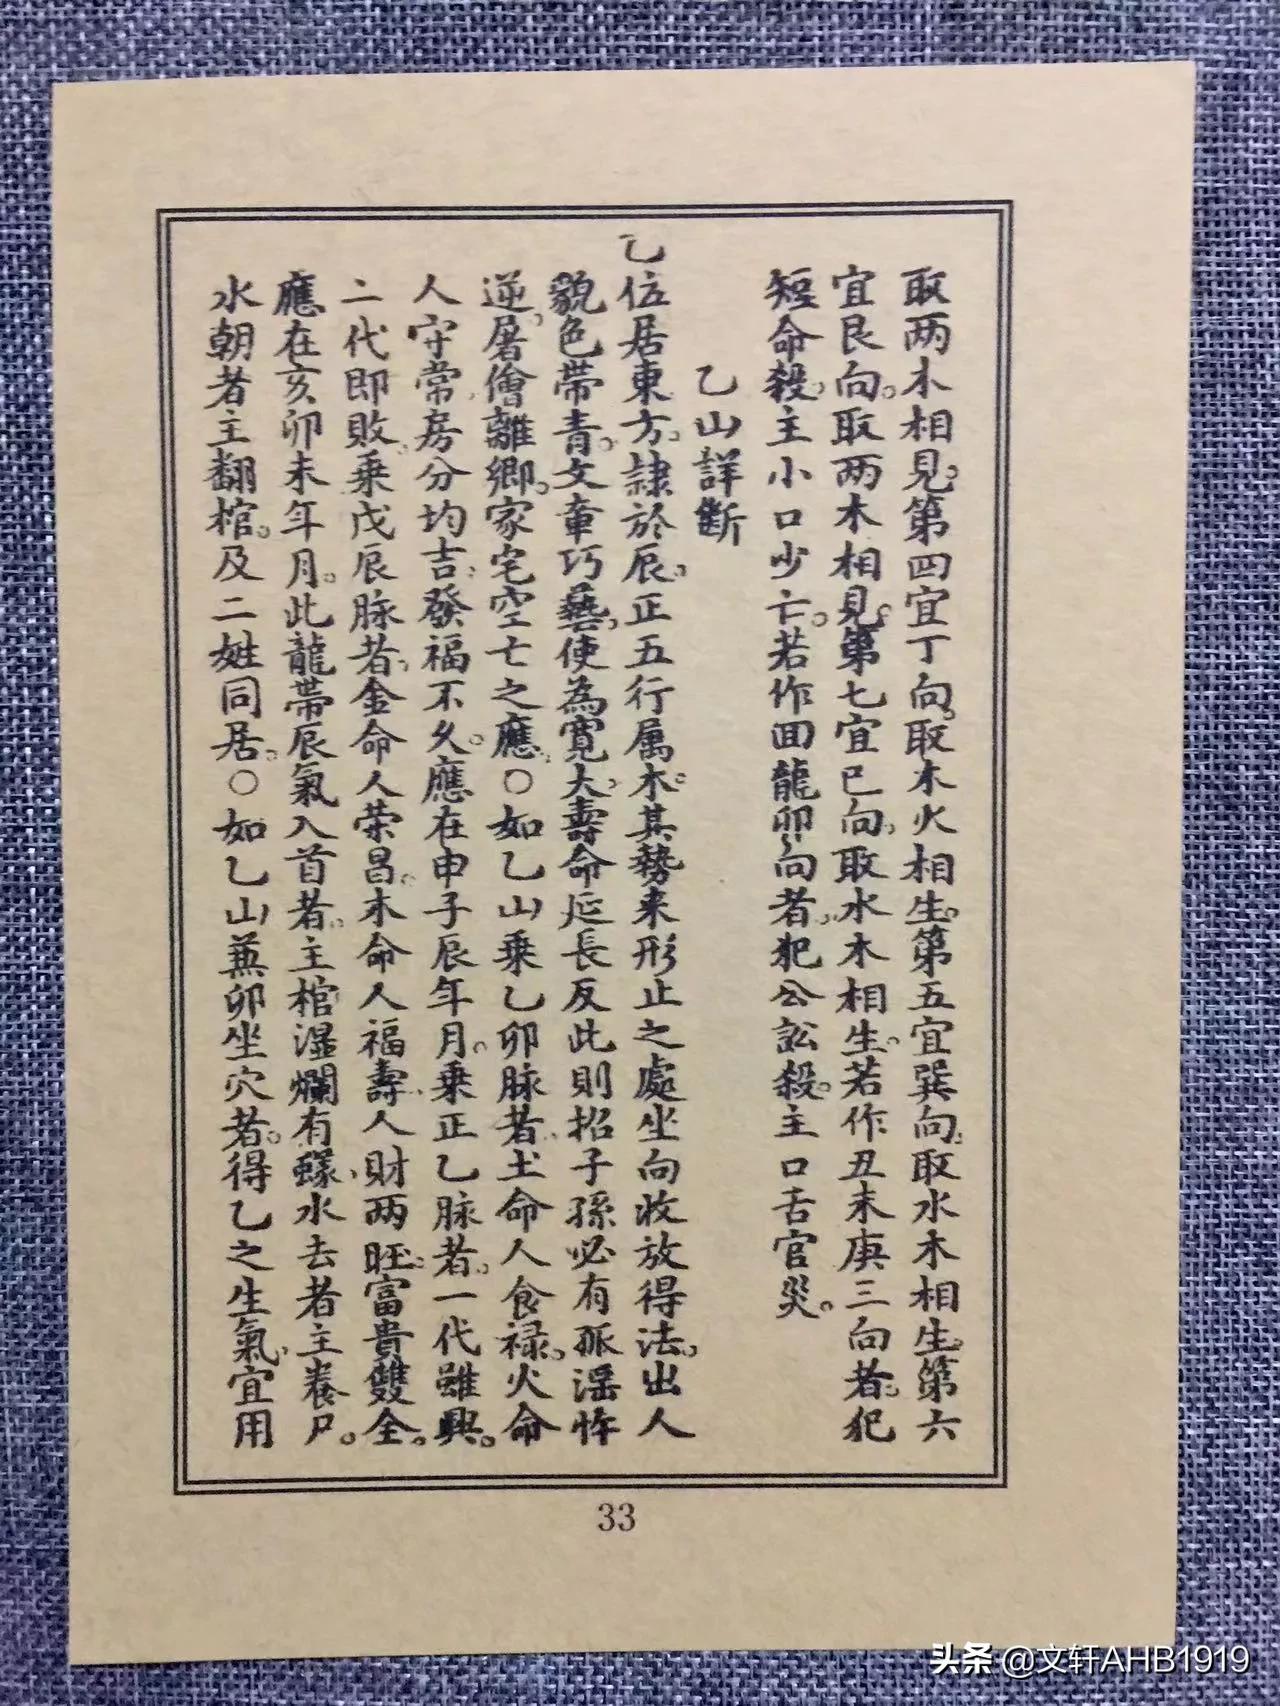 取两木相見。第四宜丁向。取木火相生。第五宜巽向。取水木相生。第六
宜艮向。取两木相見。第七宜巳向。取水木相生。若作丑未庚三向者。犯
短命殺。主小口少亡。若作回龍卯向者。犯公訟殺。主口舌官災。
乙山詳斷
乙位居東方。隷於辰。正五行属木。其勢来形止之處坐向收放得法。出人
貌色帶青。文章巧藝。使為寬大。壽命延長反此則招子孫必有孤滛忤
逆。屠儈離鄉。家宅空亡之應。○如乙山乘乙卯脉者。土命人食禄。火命
人守常。房分均吉。發福不久。應在申子辰年月。乘正乙脉者。一代雖興。
二代即敗。乘戊辰脉者。金命人荣昌。木命人福壽。人財两旺。富貴雙全。
應在亥卯未年月。此龍帶辰氣入首者。主棺濕爛有蟻。水去者主養尸。
水朝者主翻棺。及二姓同居。○如乙山兼卯坐穴者。得乙之生氣。宜用
33
头条 @文轩AHB1919